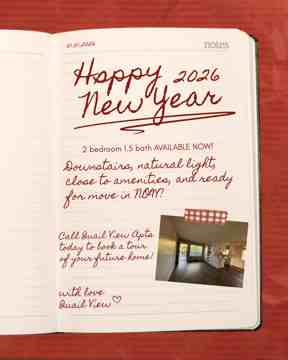 01.01.2026
notes
Happy 2026
New Year
2 bedroom 1.5 bath AVAILABLE NOW!
Downstairs, natural light,
close to amenities, and ready
for move in NOW!
Call Quail View Apts
today to book a tour
of your future home!
with love
Quail View